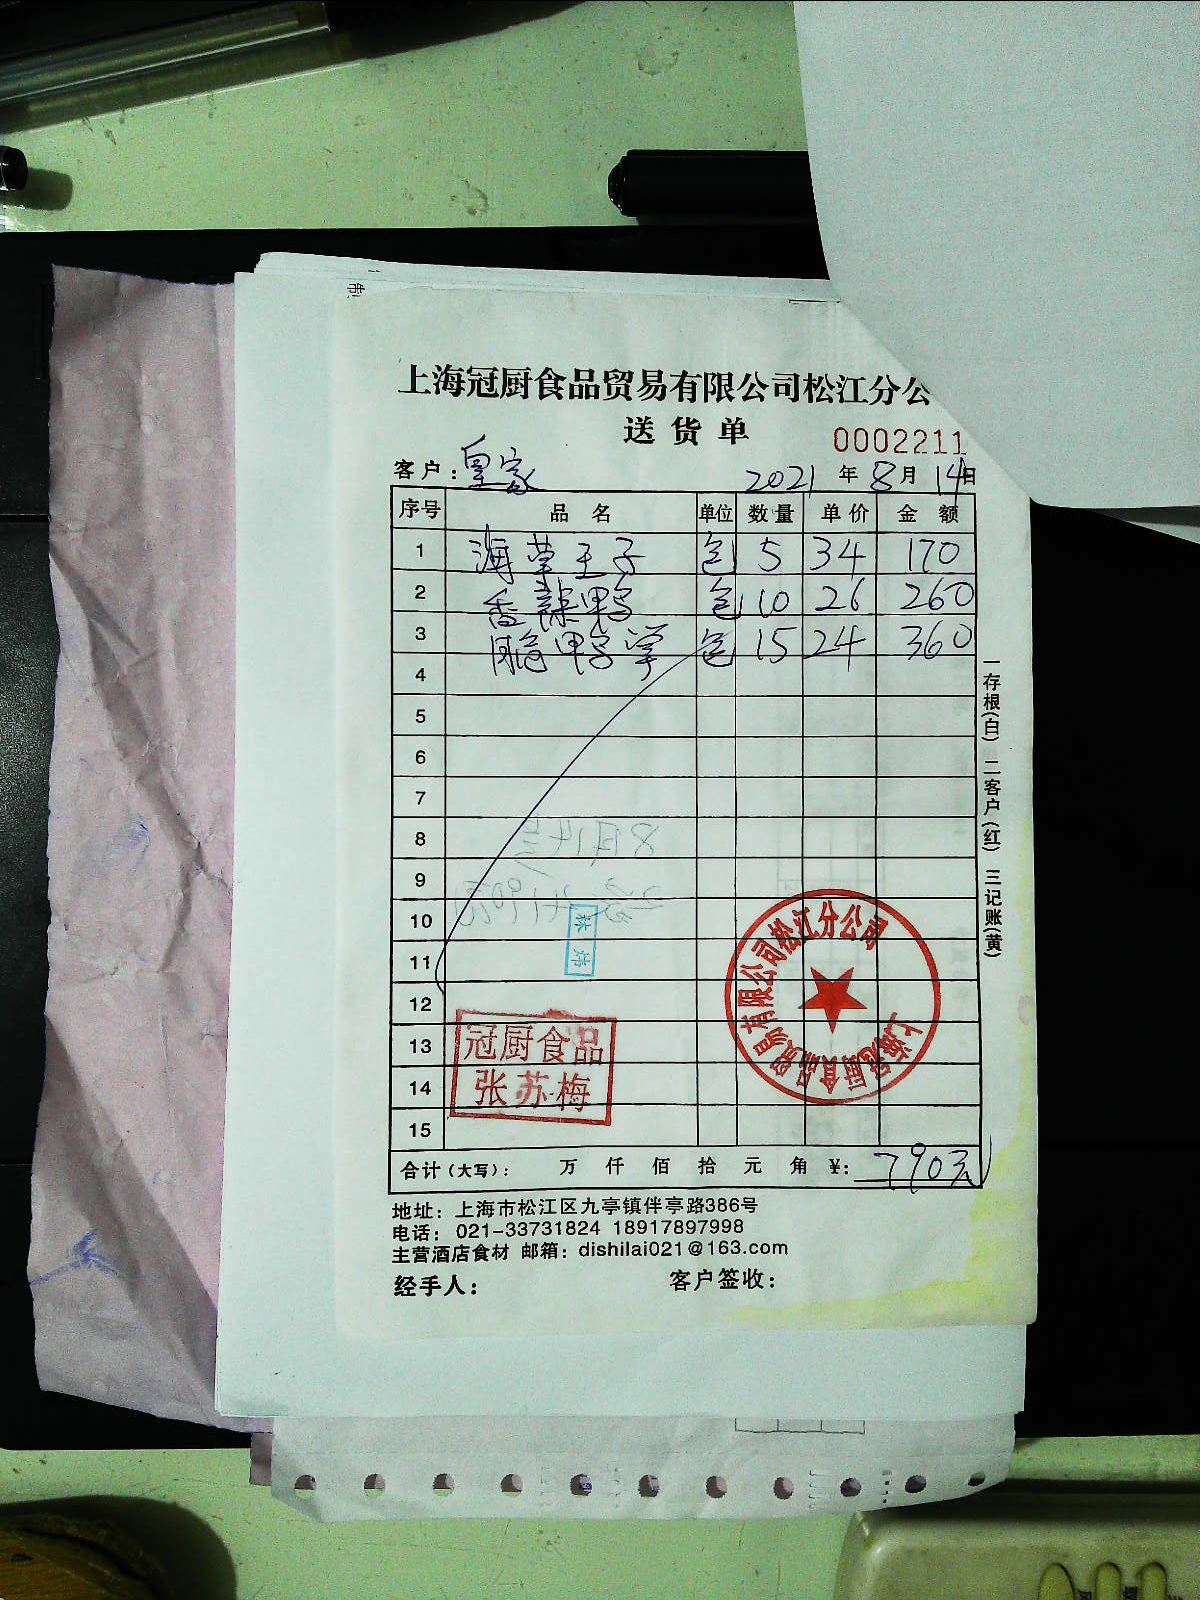 上海冠厨食品贸易有限公司松江分公
送货单
0002211
客户：皇家 2021 年 8 月 14 日
序号 品名 单位 数量 单价 金额
1 海草王子 包 5 34 170
2 香辣鸭 包 10 26 260
3 脆鸭掌 包 15 24 360
4
5
6
7
8
9
10
11
12
13
14
15
林炜
冠厨食品
张苏梅
上海冠厨食品贸易有限公司松江分公司
合计（大写）： 万 仟 佰 拾 元 角 ¥：790元
一存根(白) 二客户(红) 三记账(黄)
地址：上海市松江区九亭镇伴亭路386号
电话：021-33731824 18917897998
主营酒店食材 邮箱：dishilai021@163.com
经手人： 客户签收：